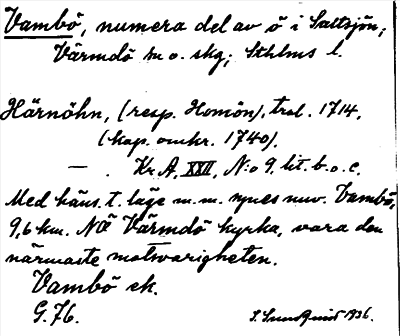 Vambö, numera del av ö i Saltsjön;
Värmdö m o. skg; Sthlms l.
Härnöhn, (resp. Homön), trol. 1714,
(kop. omkr. 1740).
— . Kr. A, XXII, N:o 9. lit. b. o. c.
Med häns. t. läge m. m. synes nuv. Vambö,
9,6 km. NÖ Värmdö kyrka, vara den
närmaste motsvarigheten.
Vambö ek.
G. 76.
S. Sundquist 1936.